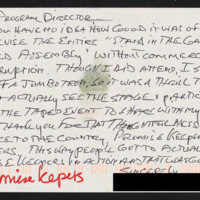 PROGRAM DIRECTOR
HAVE NO IDEA HOW GOOD IT WAS OF
THE ENTIRE "STAND IN THE GA
ASSEMBLY" WITHOUT COMMERC
RUPTION. THOUGH I DID ATTEND, I S
A JUMBOTRON, SO IT WAS THOUGH
ACTUALLY SEE THE STAGE & ACTIO
THE TAPED EVENT TO SHARE WITH M
THANK YOU FOR THAT THOUGHTFULNESS
TO THE COUNTRY, PROMISE KEEPER
THIS WAY, PEOPLE GOT TO ACTUAL
SE KEEPERS IN ACTION AND THAT WAS GOO
SINCERELY
omise Keepers